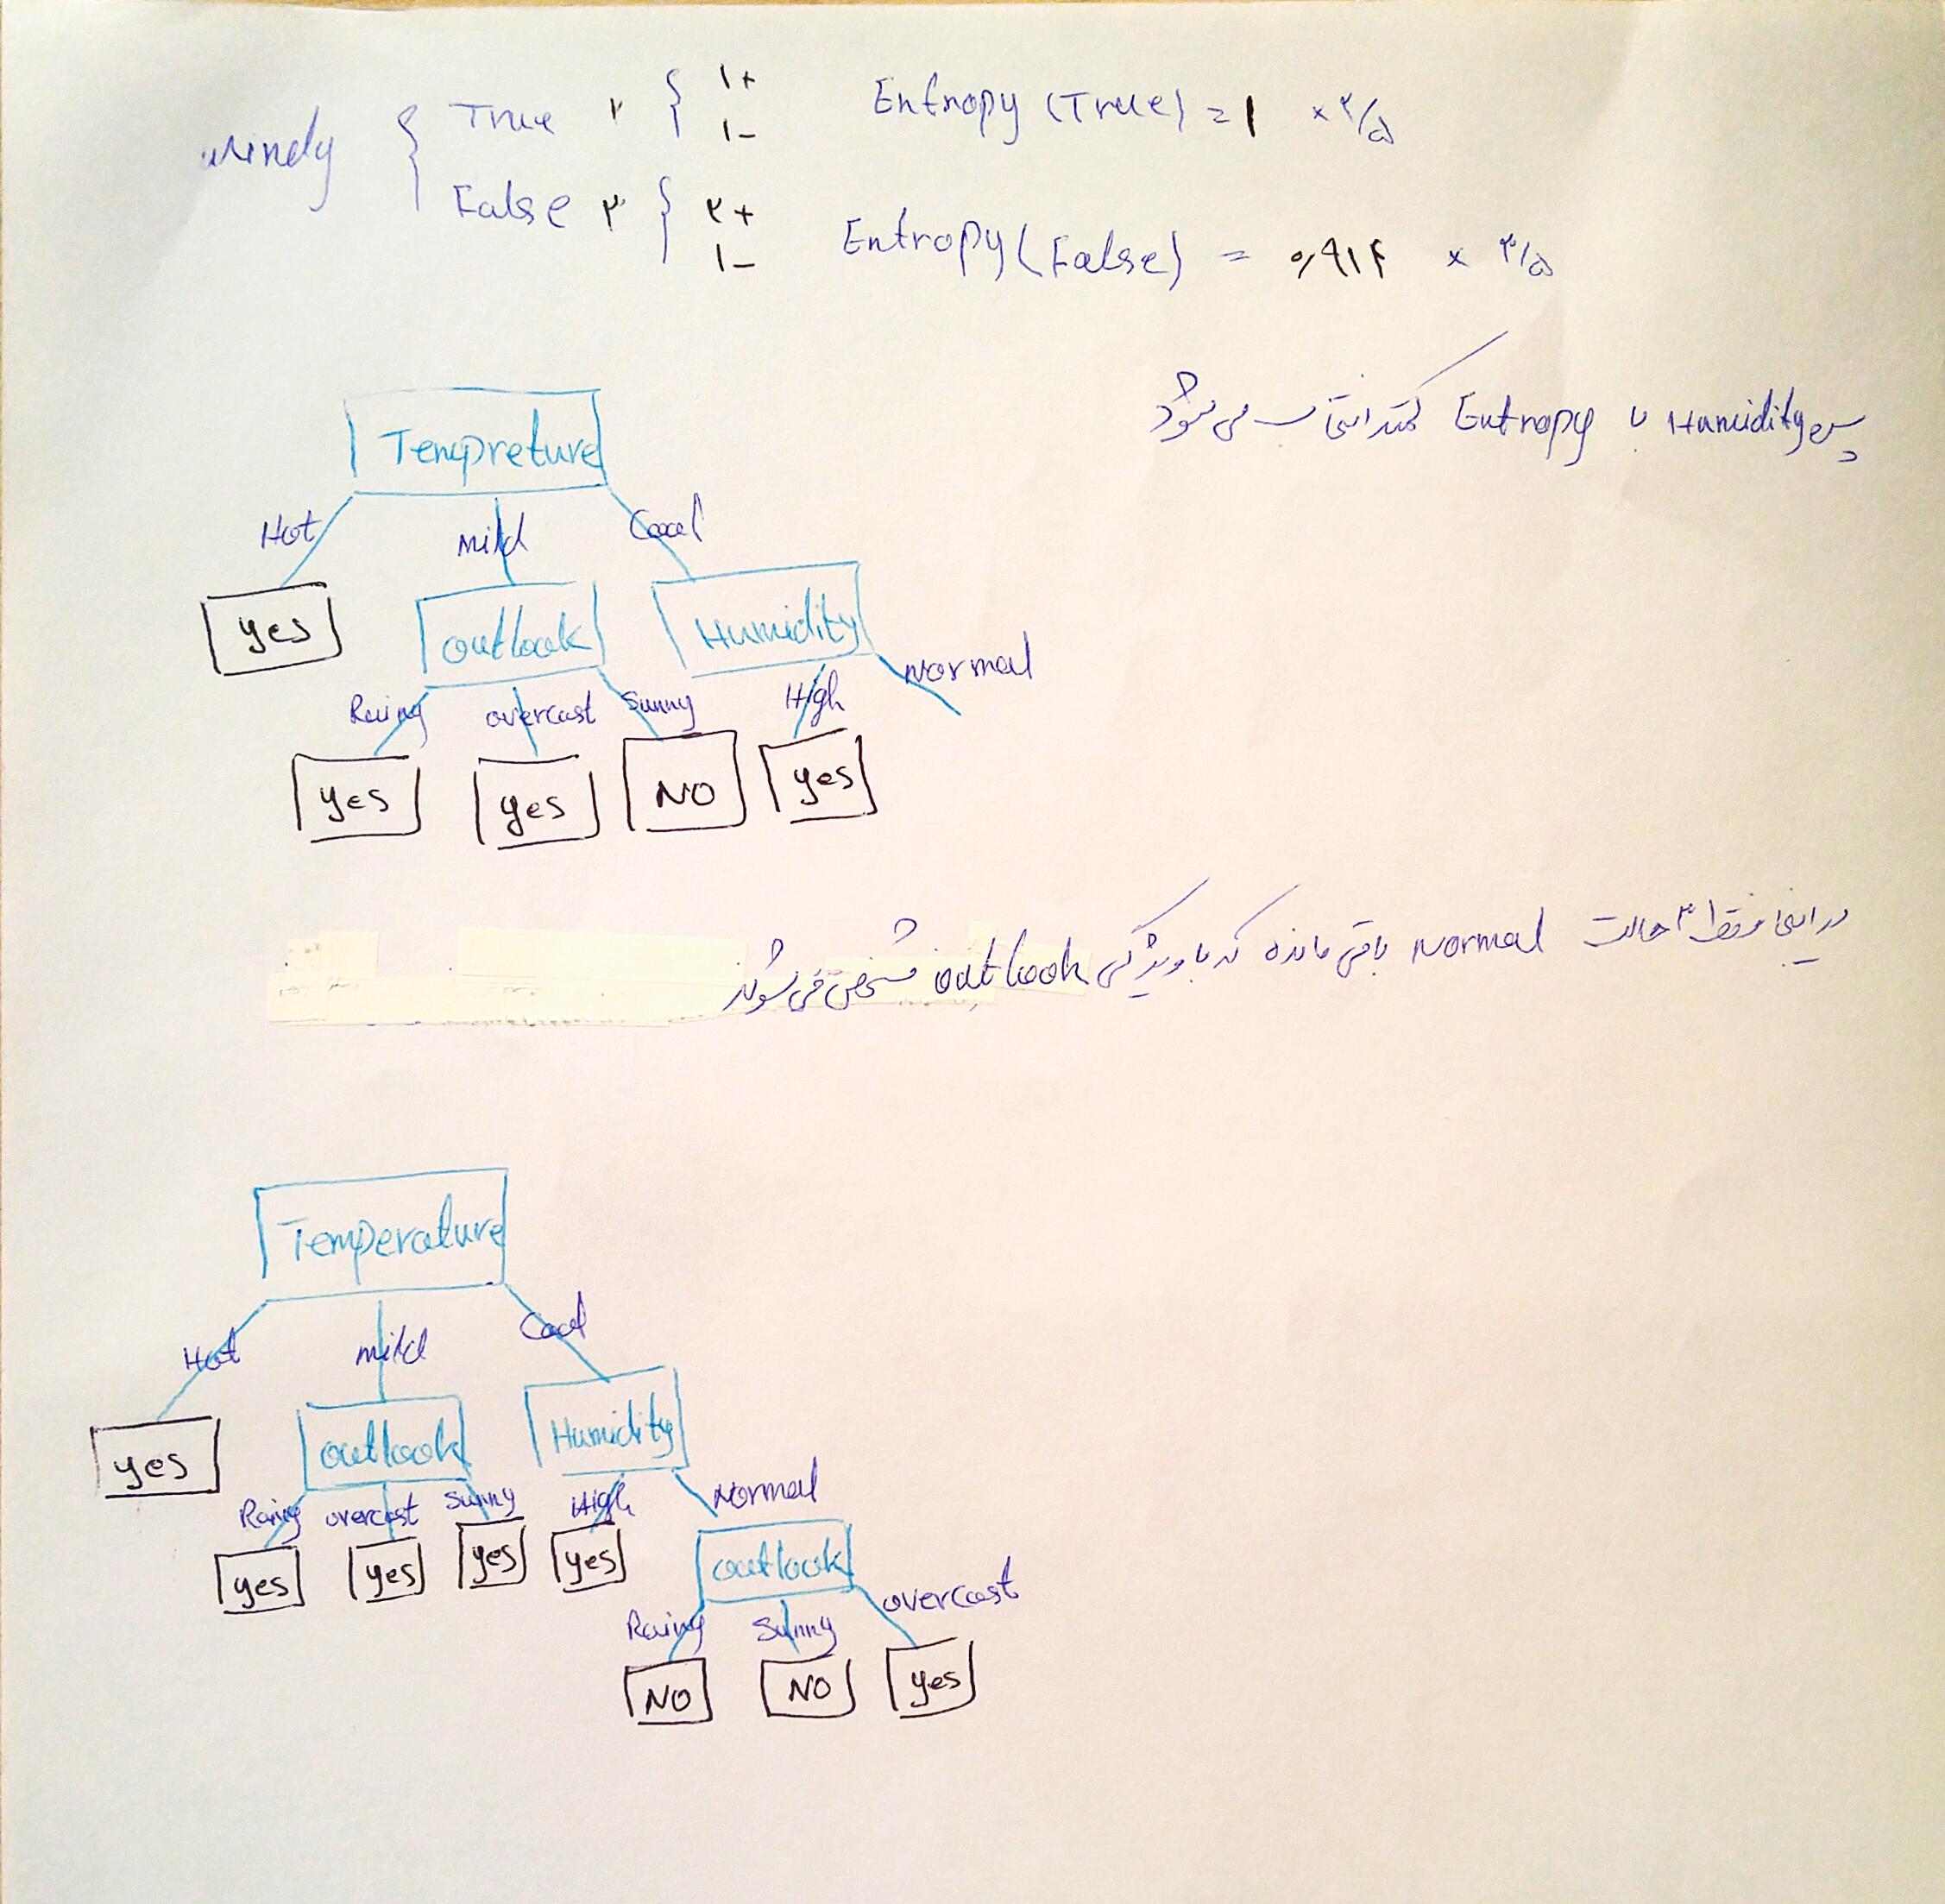 windy { True ۲ { ۱+ Entropy (True) = ۱ × ۲/۵
۱-
False ۳ { ۲+ Entropy (False) = ۰,۹۱۴ × ۳/۵
۱-
پس Humidity با Entropy کمتر انتخاب می شود
Tempreture
Hot mild Cool
yes outlook Humidity
Rainy overcast Sunny High Normal
yes yes NO yes
در اینجا فقط ۳ حالت Normal باقی مانده که با ویژگی outlook مشخص می شوند
Temperature
Hot mild Cool
yes outlook Humidity
Rainy overcast Sunny High Normal
yes yes yes yes outlook
Rainy Sunny overcast
NO NO yes